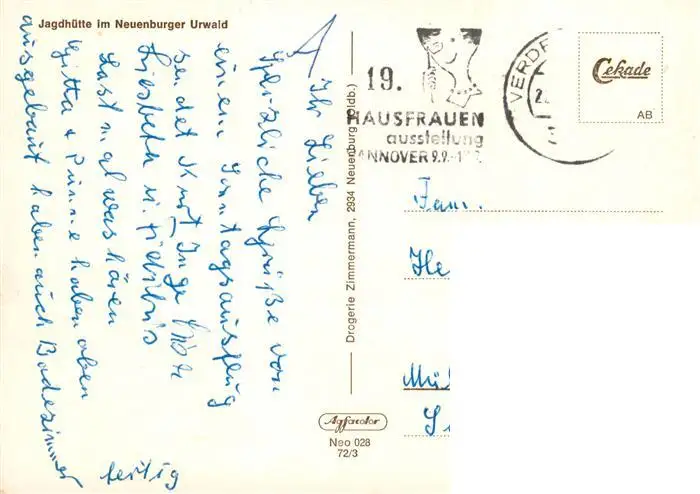 Jagdhütte im Neuenburger Urwald
Ihr Lieben
Herzliche Grüße von
einem Sonntagsausflug
sendet Kurt Inge
Liesbeth u.
Last mal was hören
Gitta + haben oben
ausgebaut haben auch Badezimmer
fertig
Drogerie Zimmermann, 2934 Neuenburg (Oldb.)
Agfacolor
Neo 028
72/3
19.
HAUSFRAUEN
ausstellung
ANNOVER 9.9.-
VERDE
Cekade
AB
Fam.
He
Mü